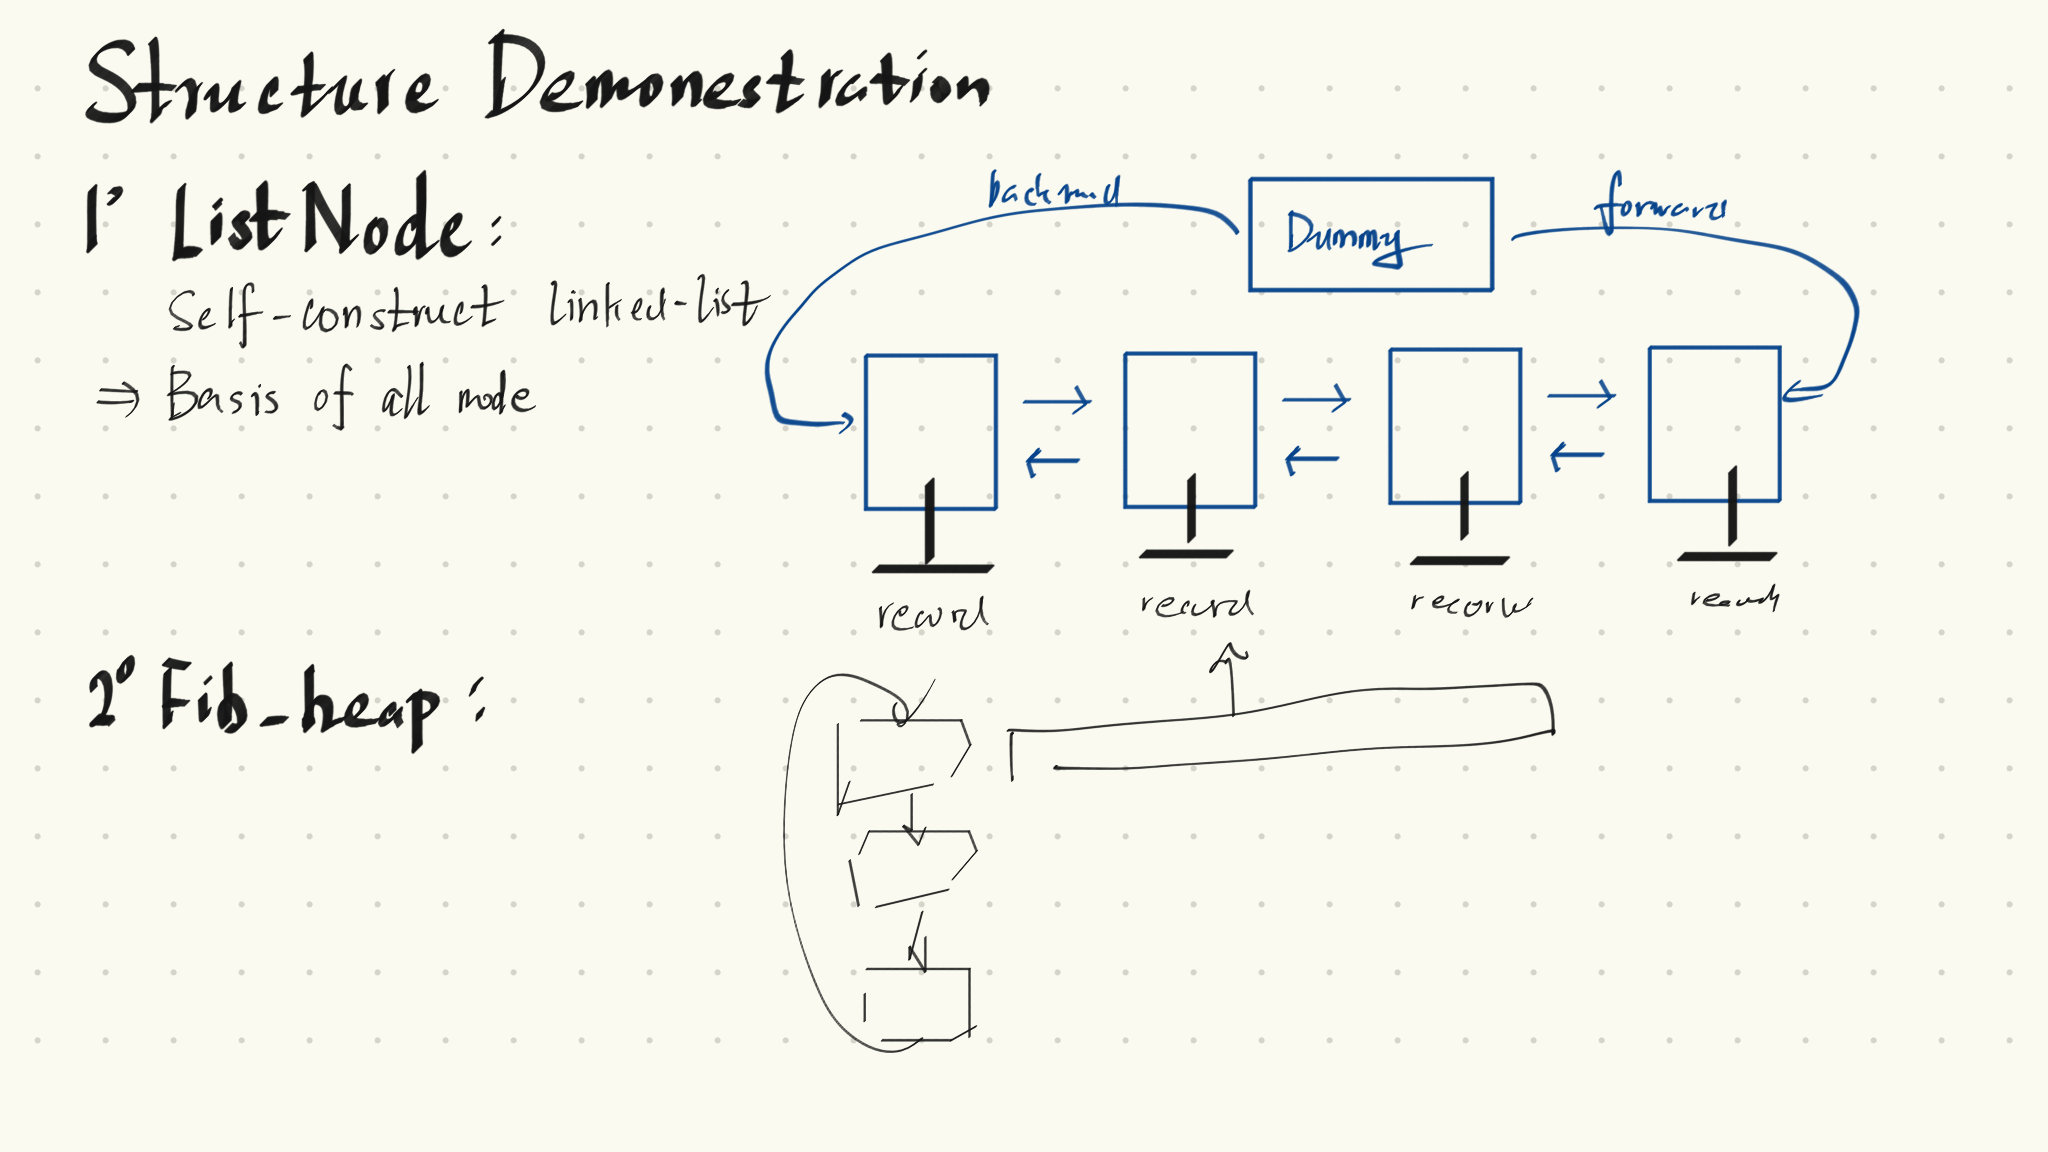 Structure Demonestration
1° ListNode:
Self-construct linked-list
⇒ Basis of all node
backward
Dummy
forward
record
record
record
record
2° Fib_heap: